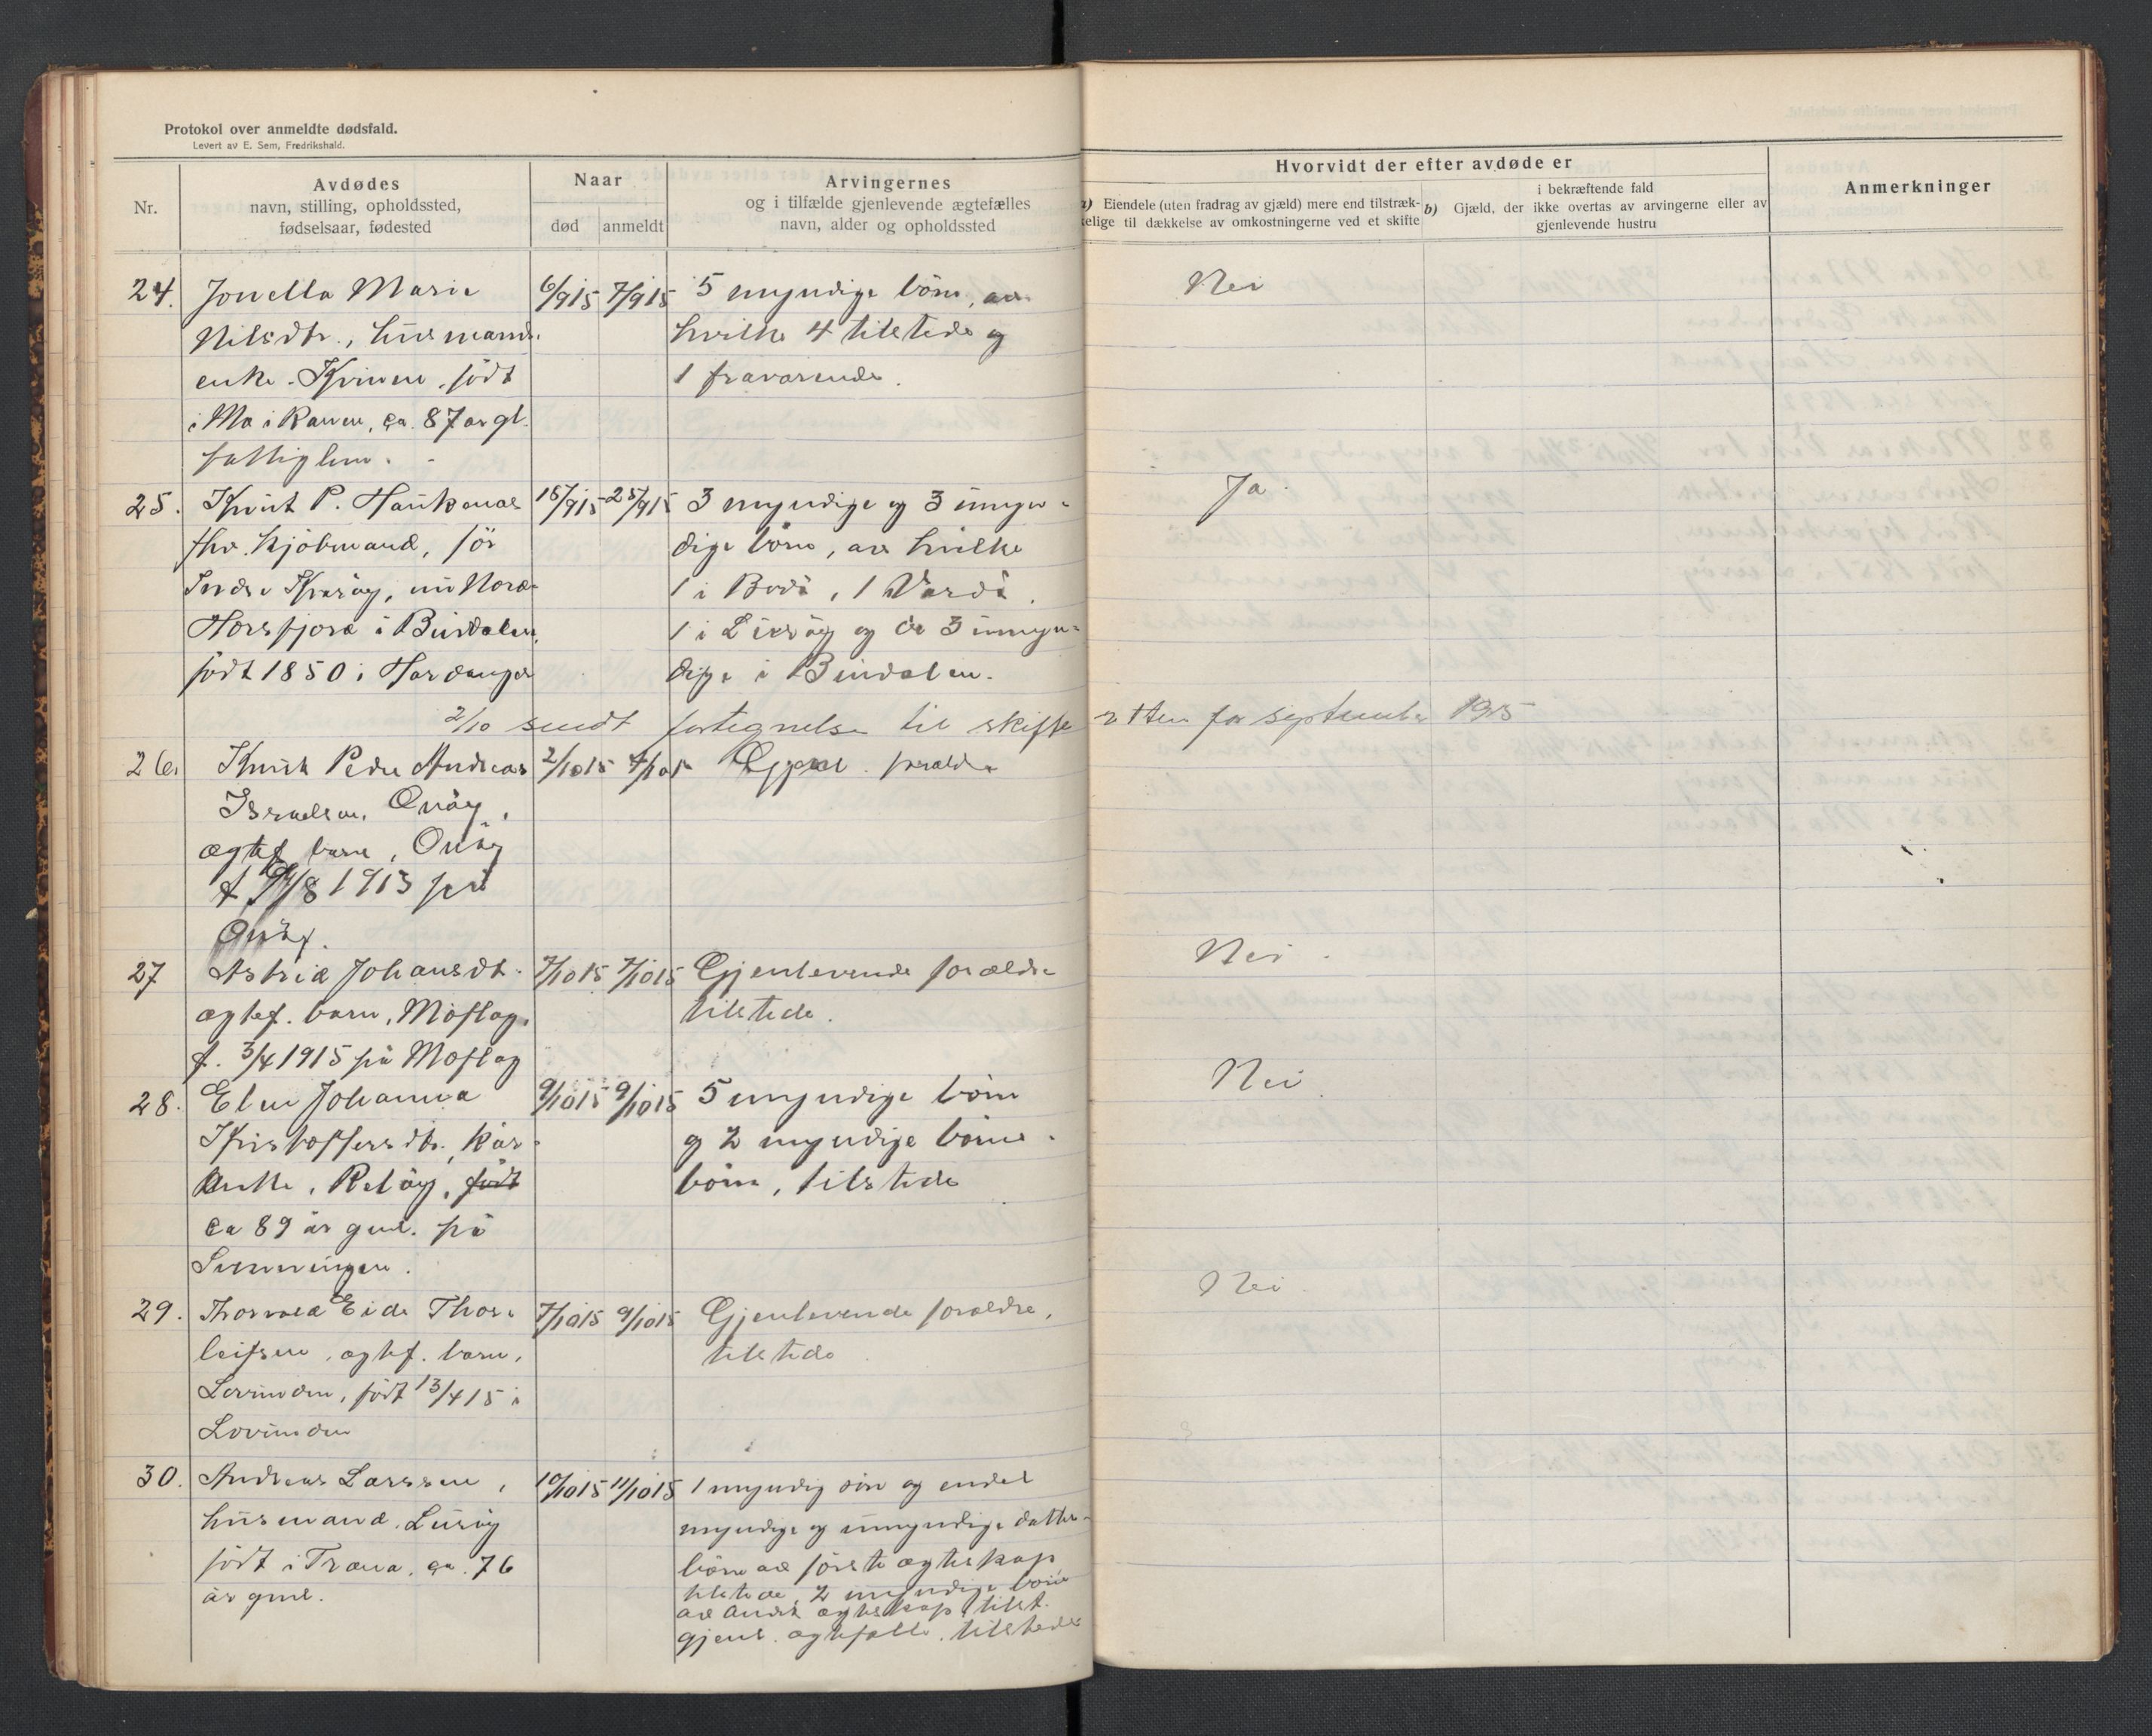 Protokol over anmeldte dødsfald.
Levert av E. Sem, Fredrikshald.
Nr.
Avdødes
navn, stilling, opholdssted,
fødselsaar, fødested
Naar
død
anmeldt
Arvingernes
og i tilfælde gjenlevende ægtefælles
navn, alder og opholdssted
Hvorvidt der efter avdøde er
a) Eiendele (uten fradrag av gjæld) mere end tilstræk-
kelige til dækkelse av omkostningerne ved et skifte
b) Gjæld, der
i bekræftende fald
ikke overtas av arvingerne eller av
gjenlevende hustru
Anmerkninger
24. Jonella Marie 6/9 15 7/9 15 5 myndige börn, av Nei
Nilsdtr., husmands. hvilke 4 tilstede og
enke. Kvinen, født 1 fraværende.
i Mo i Ranen, ca. 87 år gl.
fattiglem.
25. Knut P. Haukenæs 15/9 15 25/9 15 3 myndige og 3 umyn- Ja.
fhv. kjöbmand, för dige börn, av hvilke
Indre Kvaröy, nu Nord- 1 i Bodö, 1 Vardö.
Horsfjord i Bindalen, 1 i Luröy og de 3 umyn-
født 1850 i Hardanger dige i Bindalen.
2/10 sendt fortegnelse til skifteretten for september 1915
26. Knut Peder Andreas 2/10 15 4/10 15 Gjenl. forældre
Israelsen, Onöy,
ægtef. barn, Onöy
f. /8 1913 på
Onöy.
27 Astrid Johansdtr. 7/10 15 7/10 15 Gjenlevende forældre Nei.
ægtef. barn, Moflag, tilstede.
f. 3/4 1915 på Moflag
28. Elen Johanna 9/10 15 9/10 15 5 myndige börn Nei
Kristoffersdtr., kår- og 2 myndige börne-
enke, Relöy, født börn, tilstede
ca 89 år gml. på
29. Thorvald Eide Thor- 7/10 15 9/10 15 Gjenlevende forældre, Nei.
leifsen, ægtef. barn, tilstede
Lovunden, født 13/4 15 i
Lovunden
30. Andreas Larssen, 10/10 15 11/10 15 1 myndig sön og endel
husmand, Luröy myndige og umyndige datter-
født i Træna, ca. 76 börn av förste ægteskap
år gml. tilstede, 2 myndige börn
av andet ægteskap tilst.
gjenl. ægtefælle, tilstede